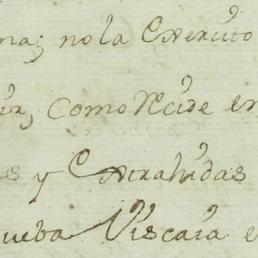 na; no la Exercito
ir, como Recide en
s y Contrahidas
ueba Viscaia e